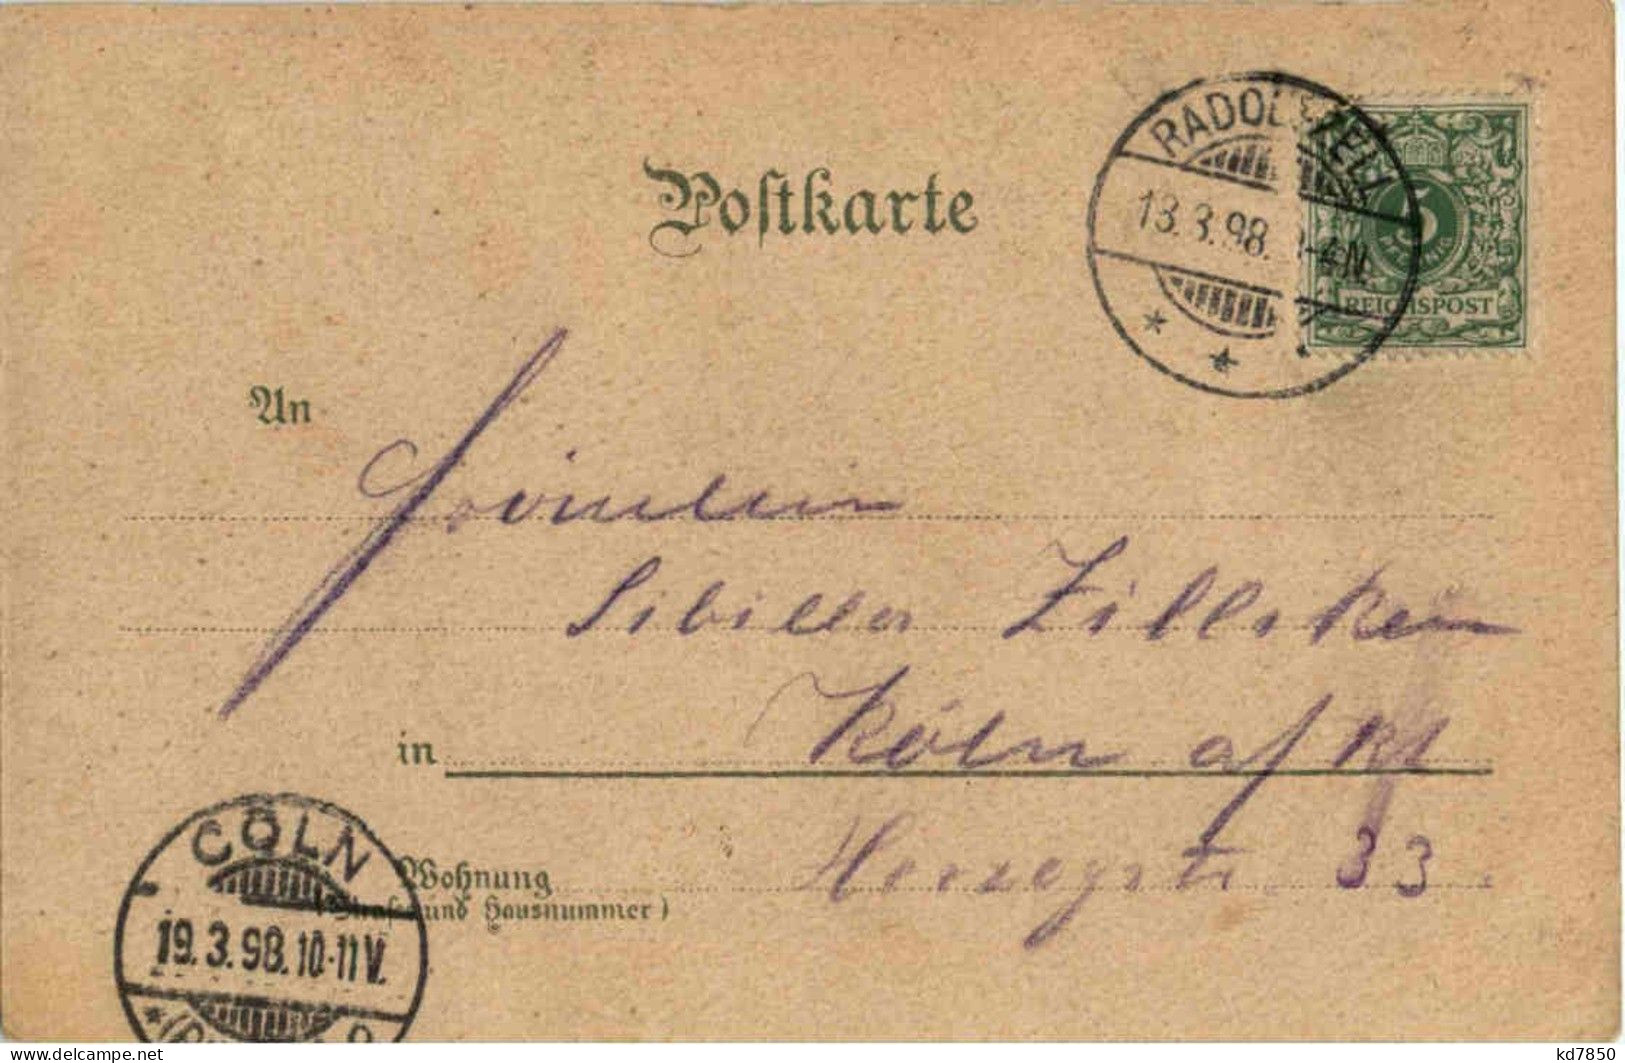 Postkarte
RADOLFZELL
18.3.98. 3-4N.
5
PFENNIG
REICHSPOST
An
Fräulein
Sibilla Zilliken
in Köln a/Rh
Wohnung Herzogstr. 33.
(Straße und Hausnummer)
CÖLN
19.3.98.10-11V.
delcampe.net
kd7850